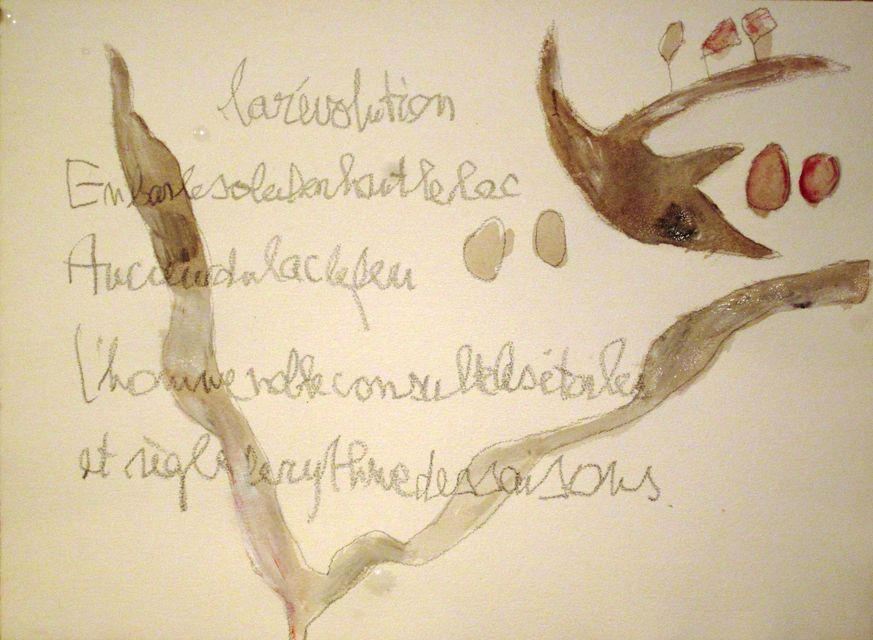 la révolution
En bas le soleil en haut le lac
Au cœur du lac le feu
L'homme noble consulte les étoiles
et règle le rythme des saisons